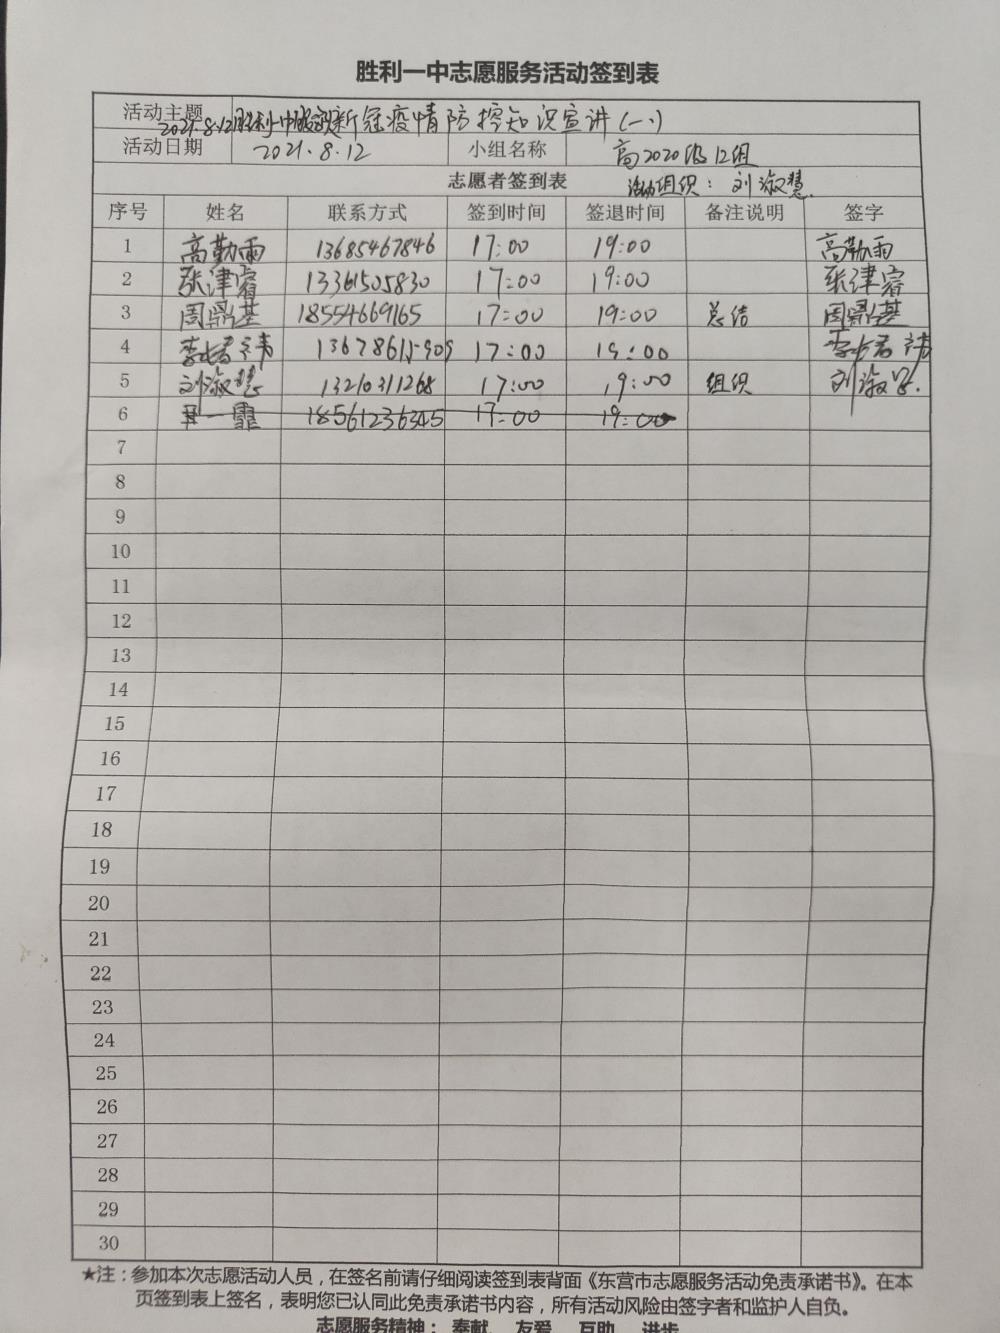 胜利一中志愿服务活动签到表
活动主题 2021.8.12胜利一中 新冠疫情防控知识宣讲(一)
活动日期 2021.8.12 小组名称 高2020级12组
志愿者签到表 活动组织：刘淑慧
序号 姓名 联系方式 签到时间 签退时间 备注说明 签字
1 高勤雨 13685467846 17:00 19:00 高勤雨
2 张津睿 13361505830 17:00 19:00 张津睿
3 周鼎基 18554669165 17:00 19:00 总结 周鼎基
4 17:00 19:00
5 刘淑慧 13210311268 17:00 19:00 组织 刘淑慧
6 一霏 18561236345 17:00 19:00
7
8
9
10
11
12
13
14
15
16
17
18
19
20
21
22
23
24
25
26
27
28
29
30
★注：参加本次志愿活动人员，在签名前请仔细阅读签到表背面《东营市志愿服务活动免责承诺书》。在本
页签到表上签名，表明您已认同此免责承诺书内容，所有活动风险由签字者和监护人自负。
志愿服务精神：奉献、友爱、互助、进步